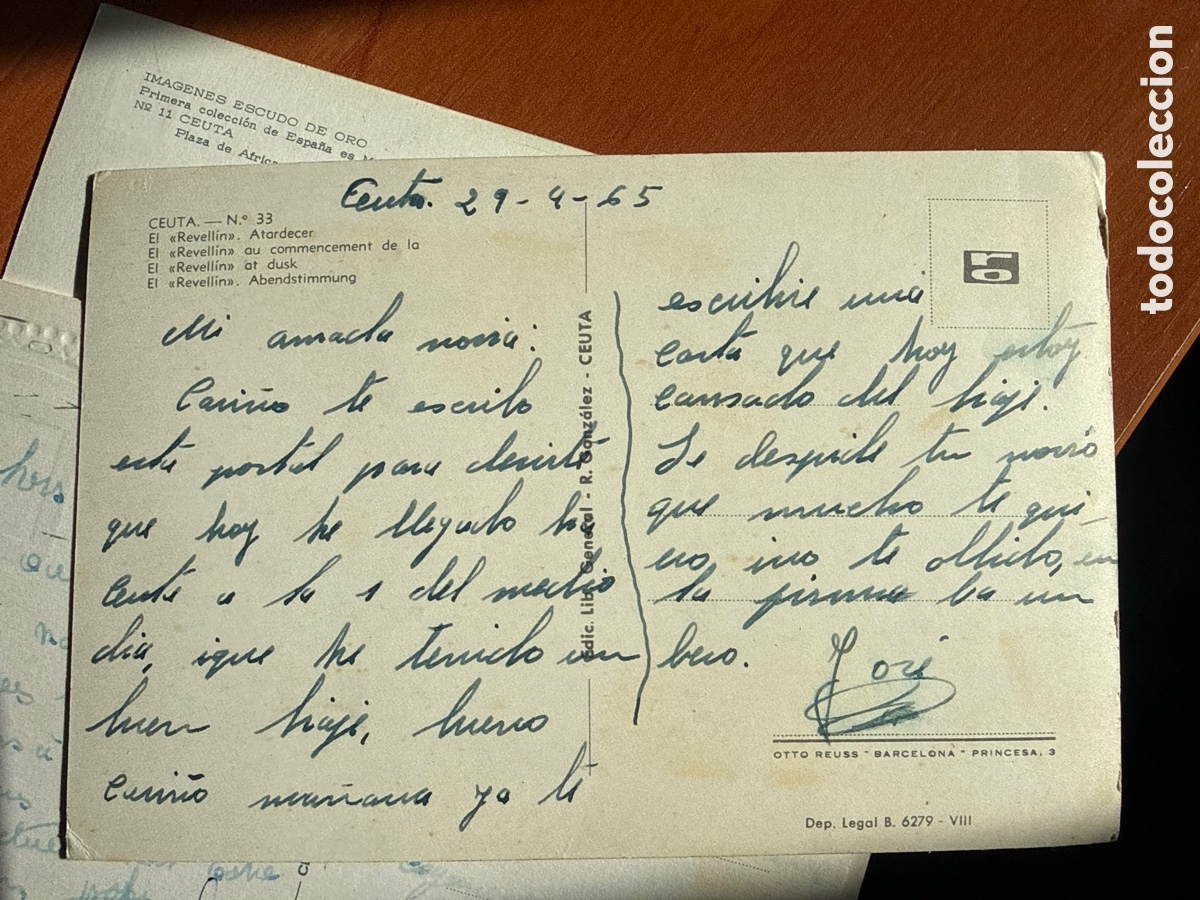 IMAGENES ESCUDO DE ORO
Primera colección de España es
Nº 11 CEUTA
Plaza de Africa
todocoleccion
Ceuta. 29-4-65
CEUTA. — N.º 33
El «Revellín». Atardecer
El «Revellín» au commencement de la
El «Revellín» at dusk
El «Revellín». Abendstimmung
Mi amada novia:
Cariño te escribo
esta postal para decirte
que hoy he llegado ha
Ceuta a la 1 del medio
dia, ique he tenido un
buen biaje, bueno
Cariño mañana ya te
Edic. Lib. General - R. González - CEUTA
escribire una
carta que hoy estoy
cansado del biaje.
Se despide tu novio
que mucho te qui-
ero ino te olbido, en
la firma ba un
beso.
José
OTTO REUSS - BARCELONA - PRINCESA, 3
Dep. Legal B. 6279 - VIII